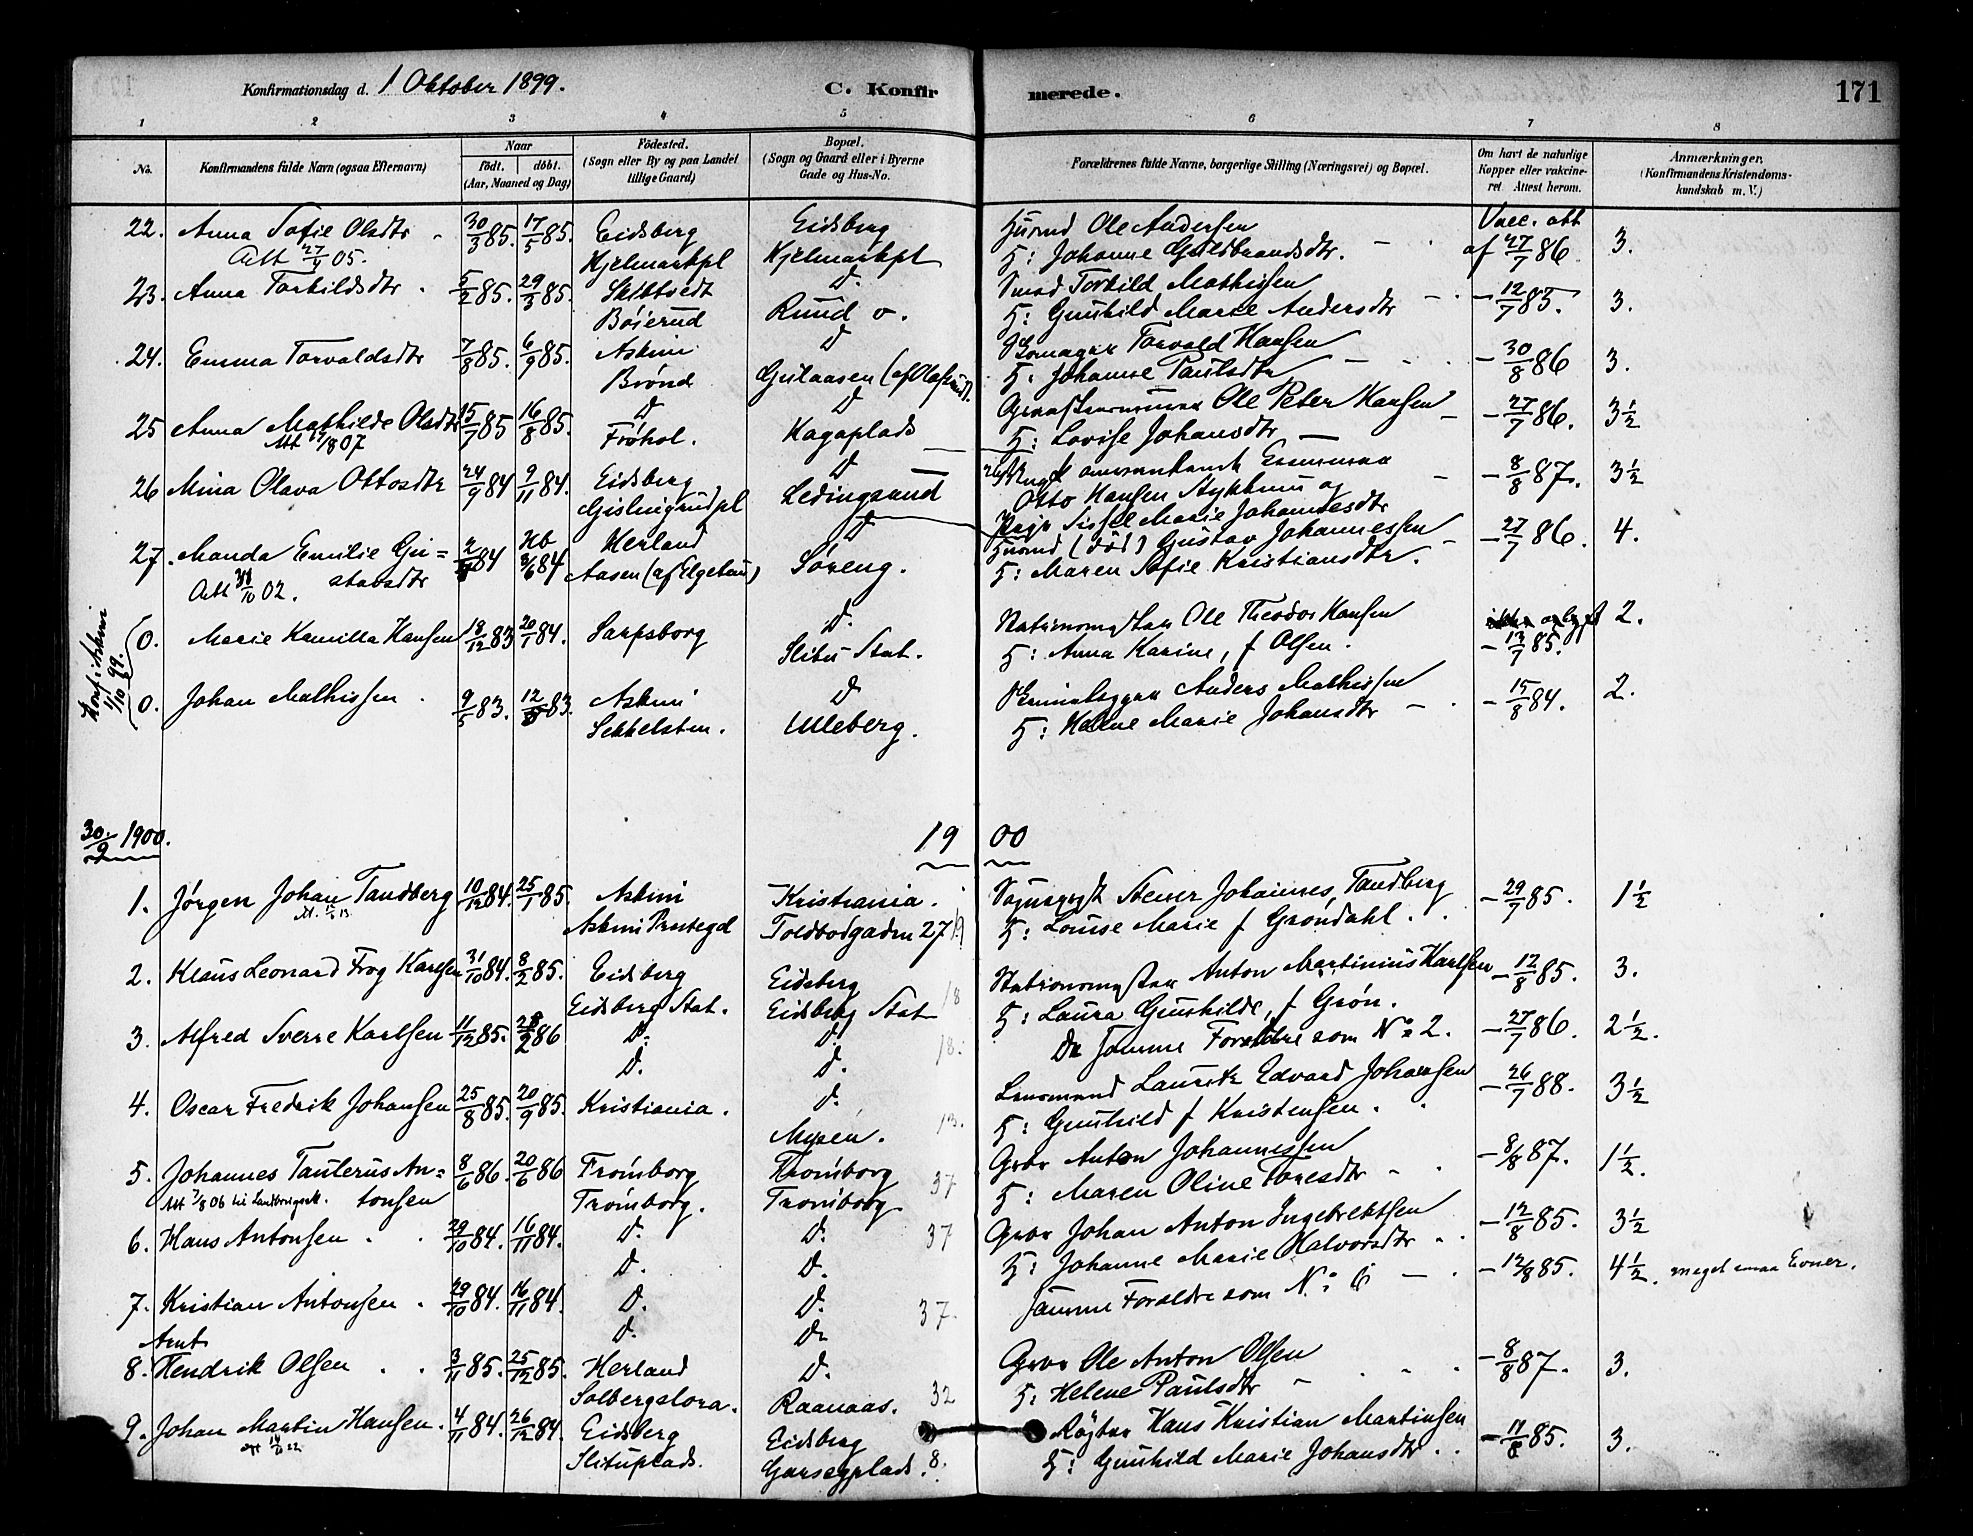 Konfirmationsdag d. 1 Oktober 1899. C. Konfirmerede. 171
1 2 3 4 5 6 7 8
No. Konfirmandens fulde Navn (ogsaa Efternavn) Naar födt. döbt. (Aar, Maaned og Dag) Födested. (Sogn eller By og paa Landet tillige Gaard) Bopæl. (Sogn og Gaard eller i Byerne Gade og Hus-No. Forældrenes fulde Navne, borgerlige Stilling (Næringsvei) og Bopæl. Om havt de naturlige Kopper eller vakcineret. Attest herom. Anmærkninger. (Konfirmandens Kristendomskundskab m. V.)
22. Anna Sofie Olsdtr 30/3 85. 17/5 85. Eidsberg Eidsberg Husmd Ole Andersen Vacc. att
Att 27/4 05. Hjelmarkpl Hjelmarkpl H: Johanne Guldbrandsdtr. af 27/7 86 3.
23. Anna Torkildsdtr 5/2 85. 29/3 85. D. Torkild Mathissen
Böierud Ruud v. H: Gunhild Marie Andersdtr - 12/7 85. 3.
24. Emma Torvaldsdtr 7/8 85. 6/9 85. Askim D Torvald Hansen
Brönd H: Johanne Paulsdtr - 30/8 86 3.
25 Anna Mathilde Olsdtr 15/7 85 16/8 85. D D Ole Peter Hansen
Att 07 Fröhol. Kagaplads H: Lovise Johansdtr - 27/7 86. 3½
26 Mina Olava Ottosdtr 24/9 84 9/11 84. Eidsberg D
Otto Hansen og - 8/8 87. 3½
Sissel Marie Johannesdtr
27. Manda Emilie Gu= 84 84 Herland D Husmd (död) Gustav Johannessen - 27/7 86. 4.
stavsdtr Aasen Söreng. H: Maren Sofie Kristiansdtr.
Att 02.
0. Marie Kamilla Hansen 18/12 83 20/1 84. Sarpsborg D. Stationsmester Ole Theodor Hansen 2.
Slitu Stat. H: Anna Karine, f Olsen. - 13/7 85.
0. Johan Mathissen 9/5 83. 12/ 83. Askim D Anders Mathissen - 15/8 84. 2.
Sekkelsten. Uleberg. H: Helene Marie Johansdtr
30/9 1900. 19 00
1. Jörgen Johan Tandberg 10/12 84. 25/1 85. Askim Kristiania. Sogneprest Stener Johannes Tandberg - 29/7 85. 1½
Askim Prestegd Toldbodgaden 27 H: Louise Marie f Gröndahl.
2. Klaus Leonard Frog Karlsen 31/10 84. 8/2 85. Eidsberg Eidsberg Stationsmester Anton Martinius Karlsen - 12/8 85. 3.
Eidsberg Stat. Eidsberg Stat 18 H: Laura Gunhilde, f Grön.
3. Alfred Sverre Karlsen 11/12 85. 28/2 86 D. D. 18. De samme Forældre som No 2. - 27/7 86. 2½.
D. D.
4. Oscar Fredrik Johansen 25/8 85. 20/9 85. Kristiania. D. Lensmand Lauritz Edvard Johansen - 26/7 88. 3½
Mysen. 13. H: Gunhild f Kristensen.
5. Johannes Taulerus An= 8/6 86. 20/6 86 Trömborg Trömborg Gbr Anton Johannessen - 8/8 87. 1½.
tonsen Trömborg. Trömborg 37 H: Maren Oline Toresdtr
Att 7/8 06
6. Hans Antonsen 29/10 84. 16/11 84. D. D. 37 Gbr Johan Anton Ingebrektsen - 12/8 85. 3½
D. D. H: Johanne Marie Halvorsdtr
7. Kristian Antonsen 29/10 84. 16/11 84. D. D. 37. samme Forældre som No: 6 - 12/8 85. 4½. meget smaa Evner.
D. D.
Arnt
8. Hendrik Olsen 3/11 85. 25/12 85. Herland D. Gbr Ole Anton Olsen - 8/8 87. 3.
Solbergslora. Raanaas. 32 H: Helene Paulsdtr
9. Johan Martin Hansen. 4/11 84. 26/12 84. Eidsberg Eidsberg Hans Kristian Martinsen
Slituplads. Garsegplads. 8. H: Gunhild Marie Johansdtr - 11/8 85. 3.